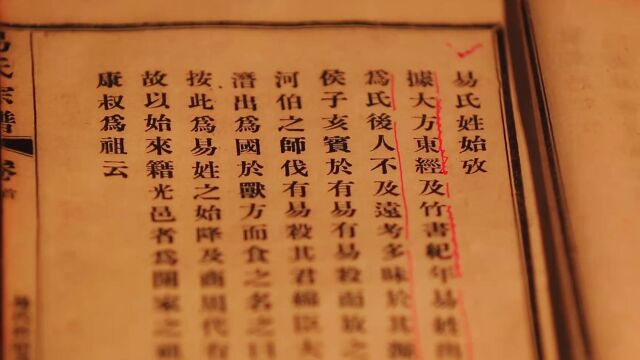 易氏姓始攷
據大方東經及竹書紀年易姓出
爲氏後人不及遠考多昧於其源
侯子亥賓於有易有易殺而放之
河伯之師伐有易殺其君綿臣大
潛出爲國於獸方而食之名之曰
按此爲易姓之始降及商周代有
故以始來籍光邑者爲開家之祖
康叔爲祖云
易氏宗譜
卷首